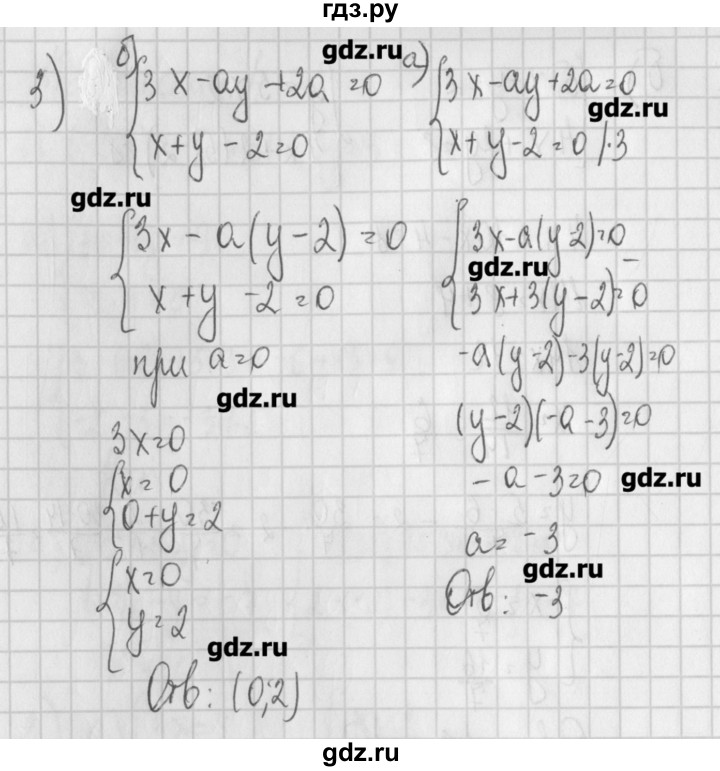 гдз.ру
3)
б) 3x-ay+2a=0
x+y-2=0
3x-a(y-2)=0
x+y-2=0
при a=0
3x=0
x=0
0+y=2
x=0
y=2
Отв: (0;2)
а) 3x-ay+2a=0
x+y-2=0 |·3
3x-a(y-2)=0
-
3x+3(y-2)=0
-a(y-2)-3(y-2)=0
(y-2)(-a-3)=0
-a-3=0
a=-3
Отв: -3
gdz.ru
gdz.ru
gdz.ru
gdz.ru
gdz.ru
gdz.ru
gdz.ru
gdz.ru
gdz.ru